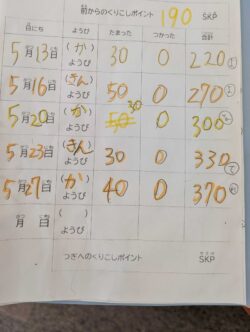 前からのくりこしポイント 190 SKP
日にち ようび たまった つかった 合計
5月13日 (か)ようび 30 0 220
5月16日 (きん)ようび 50 0 270
5月20日 (か)ようび 30 0 300
5月23日 (きん)ようび 30 0 330
5月27日 (か)ようび 40 0 370
月 日 ( )ようび
つぎへのくりこしポイント SKP